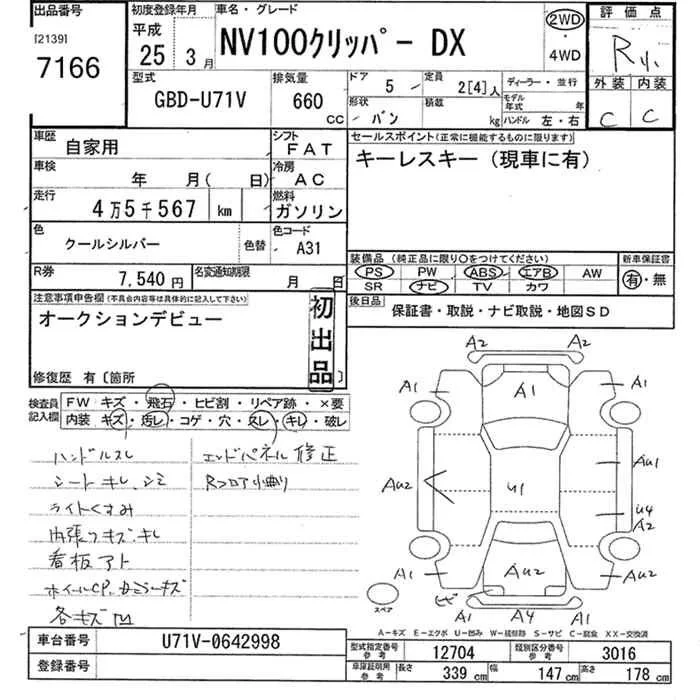 出品番号
[2139]
7166
初度登録年月
平成
25 3月
車名・グレード
NV100クリッパー DX
2WD
・
4WD
評価点
R小
外装 内装
C C
型式
GBD-U71V
排気量
660
CC
ドア 5
定員 2[4]人
ディーラー・並行
形状 バン
積載 kg
モデル年式 年
ハンドル 左・右
車歴 自家用
シフト FAT
車検 年 月( 日)
冷房 AC
走行 4万5千567 km
燃料 ガソリン
色 クールシルバー 色替
色コード A31
R券 7,540円
名変通知期限 月 日
セールスポイント(正常に機能するものに限ります)
キーレスキー(現車に有)
装備品(純正品に限り○をつけてください)
新車保証書
PS PW ABS エアB AW
SR ナビ TV カワ
有・無
後日品
保証書・取説・ナビ取説・地図SD
注意事項申告欄(不具合内容等は具体的に記入して下さい)
オークションデビュー
初出品
修復歴 有〔箇所 〕
検査員記入欄
FW キズ・飛石・ヒビ割・リペア跡・×要
内装 キズ・汚レ・コゲ・穴・スレ・キレ・破レ
ハンドルスレ
シート キレ.シミ
ライトくすみ
内張りキズ.キレ
看板アト
ホイールCP.カミラーキズ
各キズ凹
エンドパネル修正
Rフロア小曲り
A2 A2
A1 A1 A1
AU2 AU1
U1
U4
A2
A1 AU2 A1
ヒビ
A1 A4 A1
スペア
A-キズ E-エクボ U-凹み W-補修跡 S-サビ C-腐食 XX-交換済
車台番号 U71V-0642998
登録番号
型式指定番号参考 12704
類別区分番号参考 3016
車庫証明用参考 長さ 339 cm 幅 147 cm 高さ 178 cm